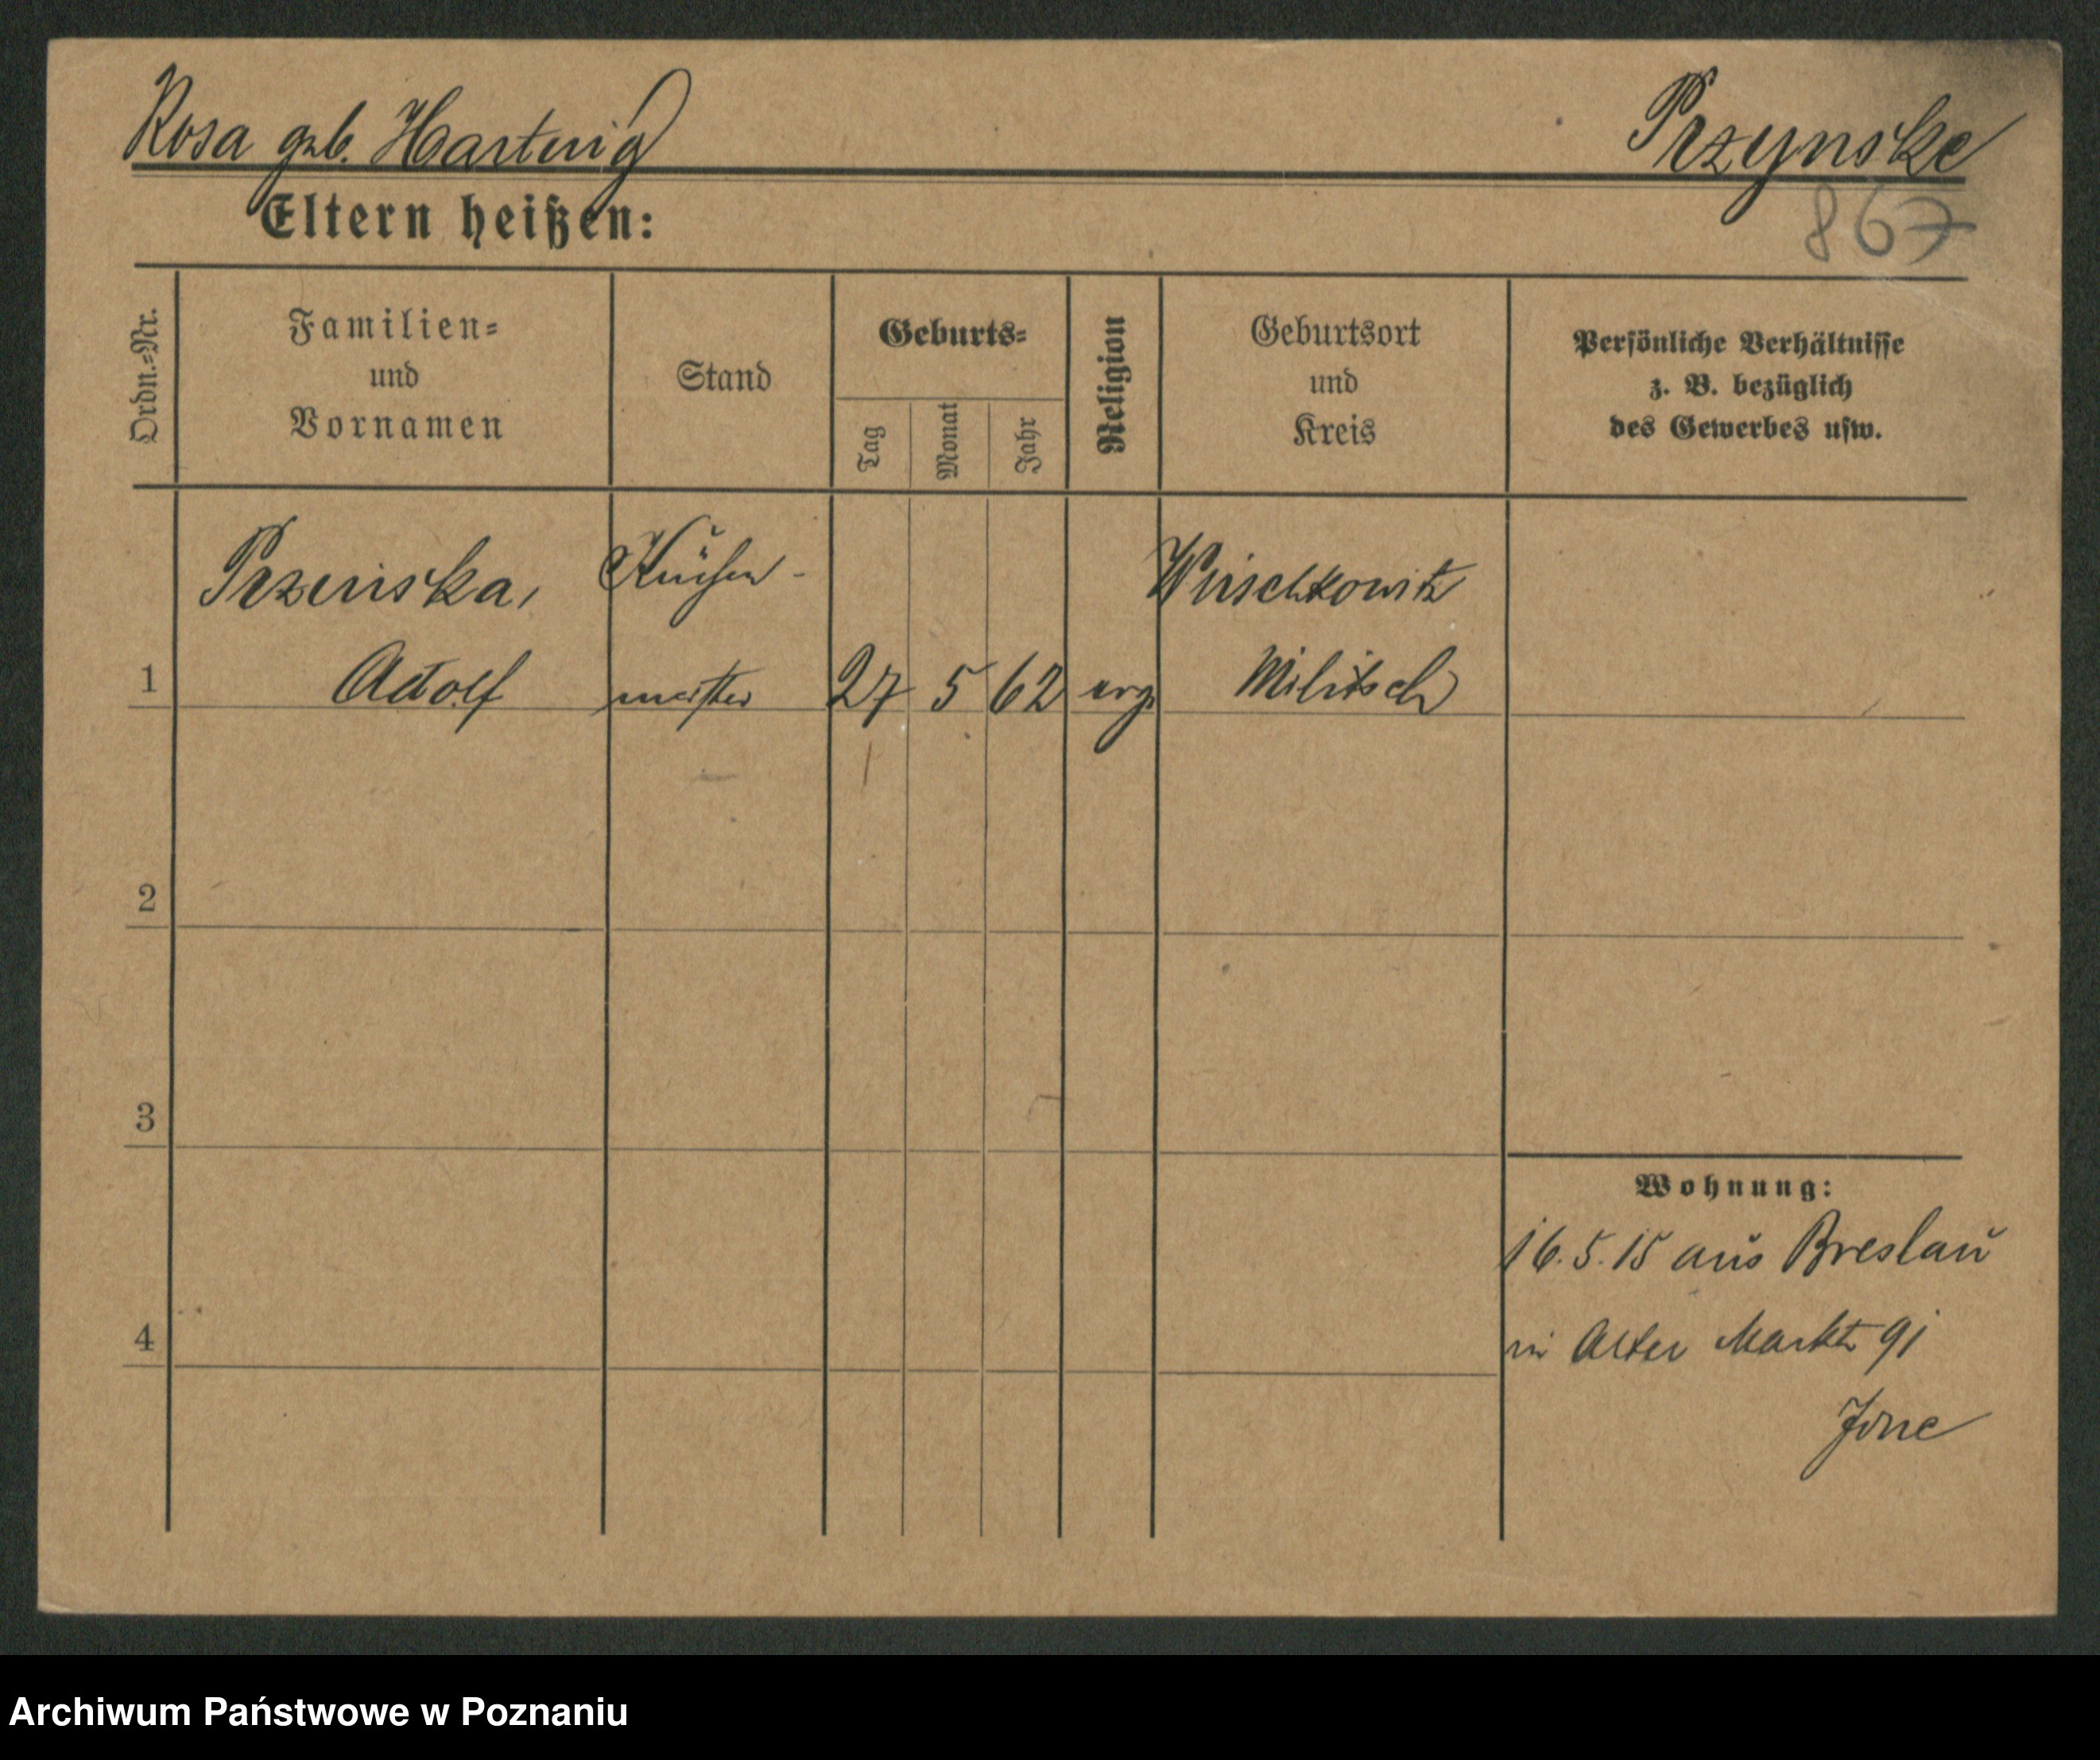 Rosa geb. Hartwig
Przynske
Eltern heißen:
867
Ordn.=Nr.
Familien=
und
Vornamen
Stand
Geburts=
Tag
Monat
Jahr
Religion
Geburtsort
und
Kreis
Persönliche Verhältnisse
z. B. bezüglich
des Gewerbes usw.
Küchen-
Wirschkowitz
1 Adolf meister 27 5 62 evg. Militsch
2
3
4
Wohnung:
16.5.15 aus Breslau
in Alter Markt 91
Archiwum Państwowe w Poznaniu